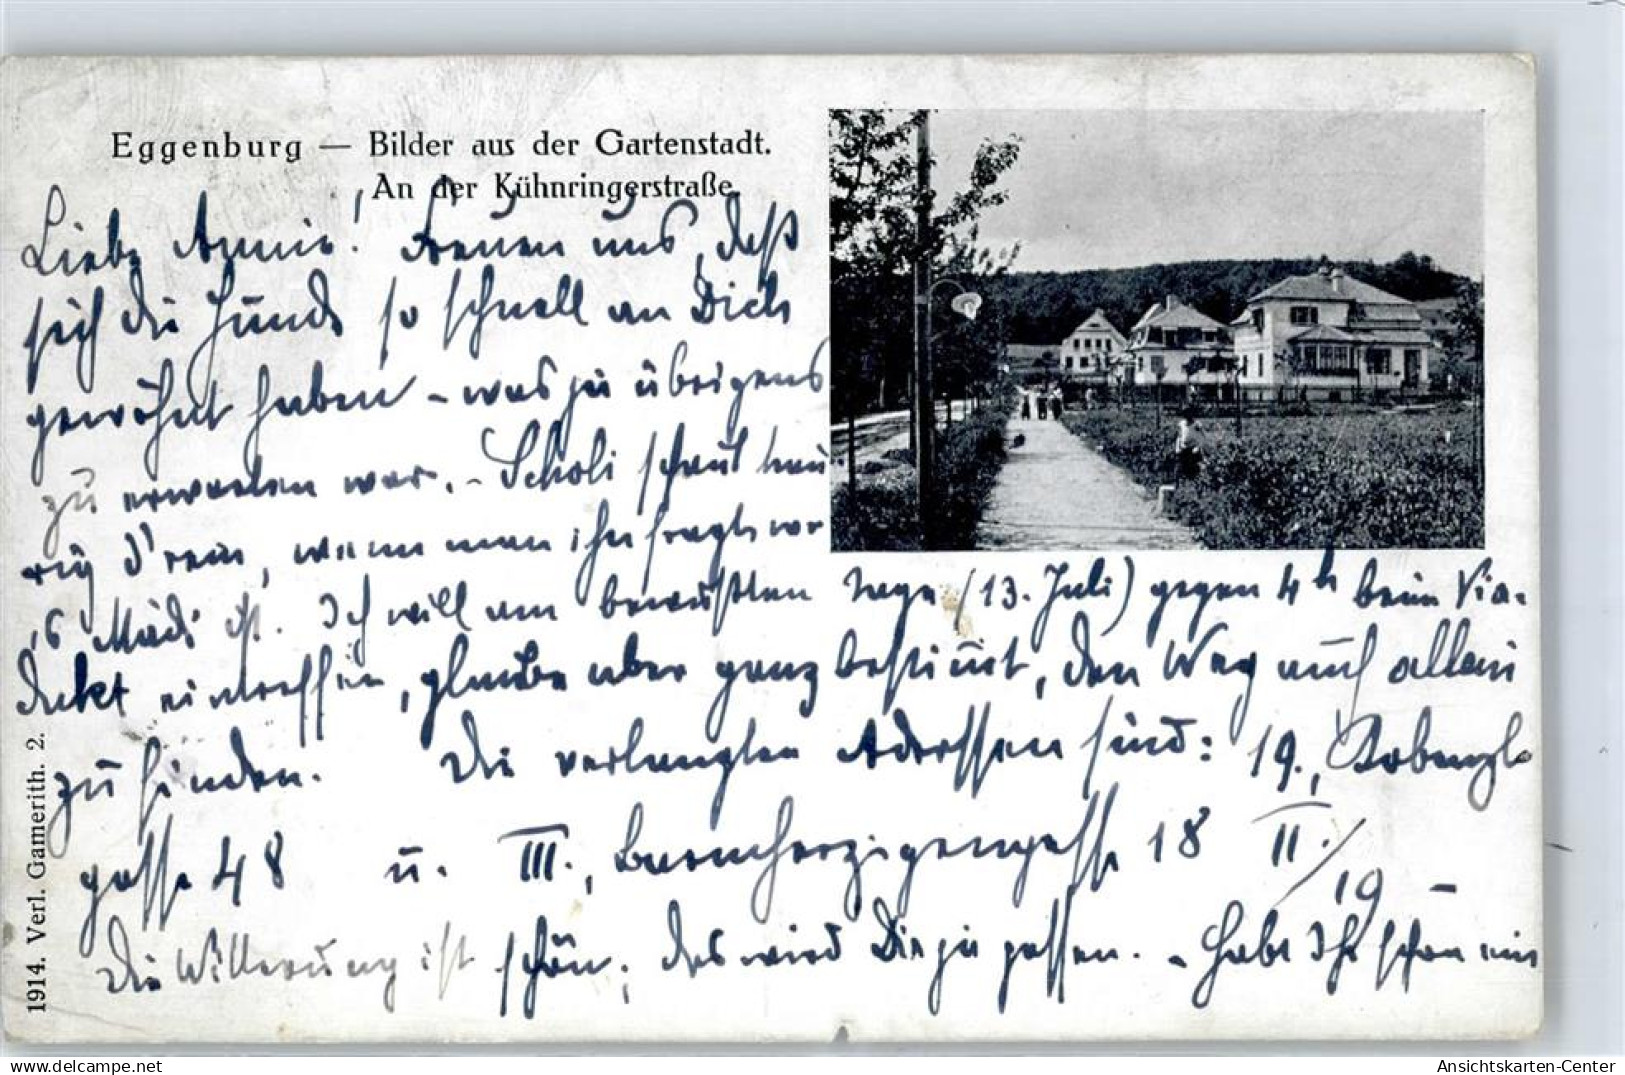 Eggenburg — Bilder aus der Gartenstadt.
An der Kühnringerstraße.
Liebe Annie! Freuen uns, daß
sich die Hunde so schnell an Dich
gewöhnt haben - was ja übrigens
zu erwarten war. - Scholi schaut trau
rig d'rein, wenn man ihn fragt, wo
's Mädi ist. Ich will am bewußten Tage (13. Juli) gegen 4h beim Via-
dukt eintreffen, glaube aber ganz bestimmt, den Weg auch allein
zu finden. Die verlangten Adressen sind: 19., Kobenzl-
gasse 48 u. III., Barmherzigengasse 18 II./19 -
Die Witterung ist schön; das wird Dir ja passen. - Habt Ihr schon
1914. Verl. Gamerith. 2.
delcampe.net
Ansichtskarten-Center